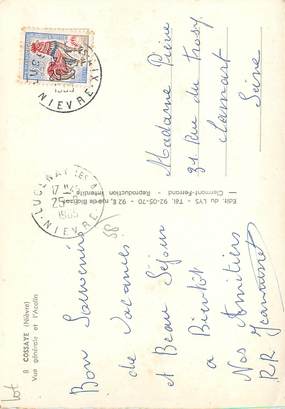 8 COSSAYE (Nièvre)
Vue générale et l'Acolin
Bon Souvenir
de Vacances
et Beau Séjour
à Bientôt
Nos Amitiés
RR
Edit. du LYS - Tél. 92-05-70 - 92, rue de Blatin
Clermont-Ferrand - Reproduction interdite
LUCENAY LES AIX
17 H
25
1965
NIEVRE
NIEVRE
Madame Pierre
31 Rue du Trosy
Clamart
Seine
lot